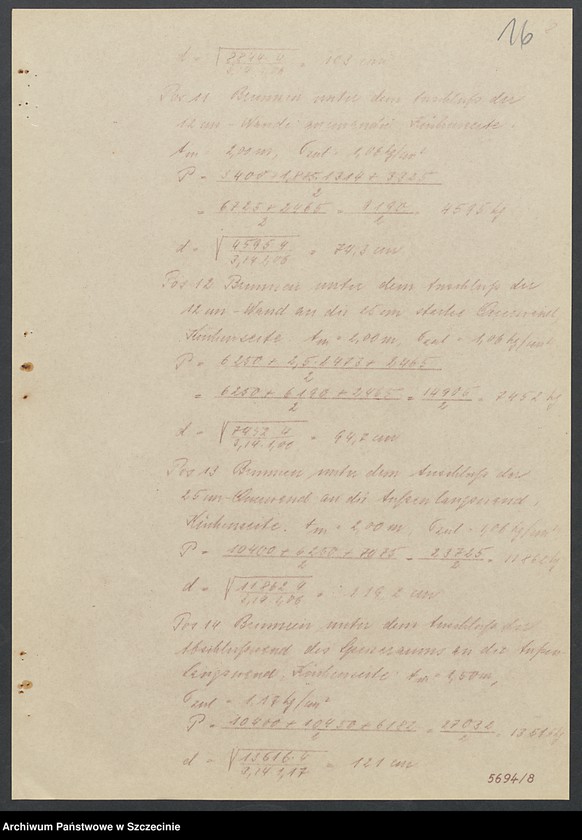 16
d = √ 4 / 3,14·1,06 = cm
Pos 11 Brunnen unter dem Anschluß der
12 cm - Wand Küchenseite.
tm = 2,00 m, σzul = 1,06 kg/cm²
P = 3400 + 1,875·1314 + 3325 / 2
= 6725 + 2465 / 2 = 9190 / 2 4595 kg
d = √ 4595·4 / 3,14·1,06 = 74,3 cm
Pos 12 Brunnen unter dem Anschluß der
12 cm - Wand an die 25 cm starke Querwand
Küchenseite tm = 2,00 m, σzul = 1,06 kg/cm²
P = 6250 + 2,5·2473 + 2465 / 2
= 6250 + 6190 + 2465 / 2 = 14905 / 2 = 7452 kg
d = √ 7452·4 / 3,14·1,06 = 94,7 cm
Pos 13 Brunnen unter dem Anschluß der
25 cm - Querwand an die Außenlängswand,
Küchenseite. tm = 2,00 m, σzul = 1,06 kg/cm²
P = 10400 + 6250 + 7075 / 2 = 23725 / 2 = 11862 kg
d = √ 11862·4 / 3,14·1,06 = 119,2 cm
Pos 14 Brunnen unter dem Anschluß der
Abschlußwand des an der Außen
längswand, Küchenseite: tm = 2,50 m,
σzul = 1,17 kg/cm²
P = 10400 + 10450 + 6182 / 2 = 27032 / 2 = 13516 kg
d = √ 13516·4 / 3,14·1,17 = 121 cm
5694/8
Archiwum Państwowe w Szczecinie